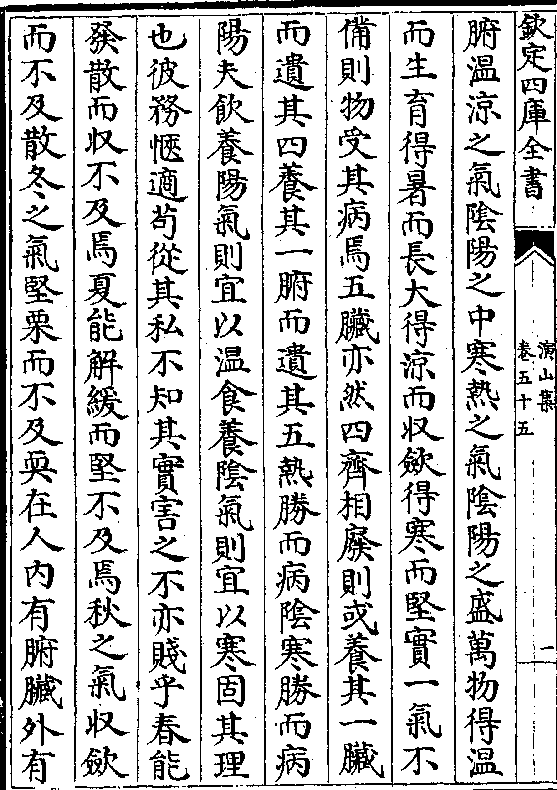 欽定四庫全書
演山集
卷五十五
一
腑温涼之氣陰陽之中寒熱之氣陰陽之盛萬物得温
而生育得暑而長大得涼而収歛得寒而堅實一氣不
備則物受其病焉五臟亦然四齊相廢則或養其一臟
而遺其四養其一腑而遺其五熱勝而病陰寒勝而病
陽夫飲養陽氣則宜以温食養陰氣則宜以寒固其理
也彼務愜適苟從其私不知其實害之不亦賤乎春能
發散而収不及焉夏能解緩而堅不及焉秋之氣収歛
而不及散冬之氣堅栗而不及耎在人内有腑臟外有